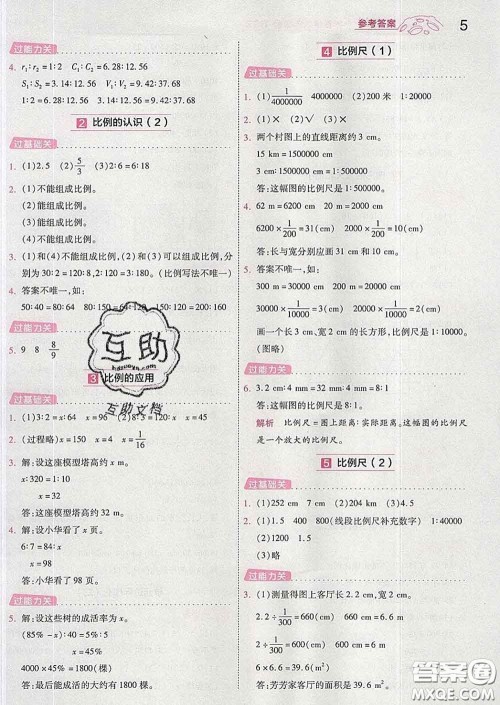 参考答案
5
过能力关
4. r₁:r₂=1:2 C₁:C₂=6.28:12.56
S₁:S₂=3.14:12.56
1:2=6.28:12.56
2 比例的认识(2)
过基础关
1. (1)2.5 (2)5/3 (3)2:6=6:18
2. (1)不能组成比例。
(2)能组成比例。
(3)能组成比例。
(4)不能组成比例。
3. (1)和(4)不能组成比例,(2)和(3)可以组成比例,分
别为30:2=120:8,2:30=8:120。(比例写法不唯一)
4. 答案不唯一,如:
50:40=80:64
120:150=160:200
过能力关
5. 9 8 8/9
3 比例的应用
过基础关
1. (1)3:2=x:64 x=96
x=45
2. (过程略)x=50 x=4 x=1/16
3. 解:设这座模型塔高约x m。
x:320=1:10
x=32
答:这座模型塔高约32 m。
4. 解:设小华看了x页。
6:7=84:x
x=98
答:小华看了98页。
过能力关
5. 解:设这些树的成活率为x。
(85%-x):x=8:9
x=45%
4000×45%=1800(棵)
答:最后能成活的大约有1800棵。
4 比例尺(1)
过基础关
1. (1)1/4000000 4000000 (2)200米 1:20000
2. (1)× (2)√ (3)×
3. 两个村图上的直线距离约3 cm。
15 km=1500000 cm
3:1500000=1:500000
答:这幅图的比例尺是1:500000。
4. 62 m=6200 cm 20 m=2000 cm
6200×1/200=31(cm) 2000×1/200=10(cm)
答:长与宽分别应画31 cm和10 cm。
5. 答案不唯一,如:
300 m=30000 cm 200 m=20000 cm
30000×1/10000=3(cm) 20000×1/10000=2(cm)
画一个长3 cm、宽2 cm的长方形,比例尺1:10000。
(图略)
过能力关
6. 3.2 cm:4 mm=32 mm:4 mm=8:1
答:这幅图的比例尺是8:1。
解析 比例尺=图上距离:实际距离。这幅图的比例尺
是一个放大的比例尺。
5 比例尺(2)
过基础关
1. (1)252 cm 7 cm (2)204 km (3)4.5
2. (1)1.5 400 800(线段比例尺补充数字) 1:40000
(2)3.5
(3)略
过能力关
3. (1)测量得图上客厅长2.2 cm,宽2 cm。
2.2÷1/300=660(cm) 2÷1/300=600(cm)
660 cm=6.6 m 600 cm=6 m
6×6.6=39.6(m²)
答:芳芳家客厅的面积是39.6 m²。
互助
hdzuoye.com
互助文档
答案圈
MXQE.COM